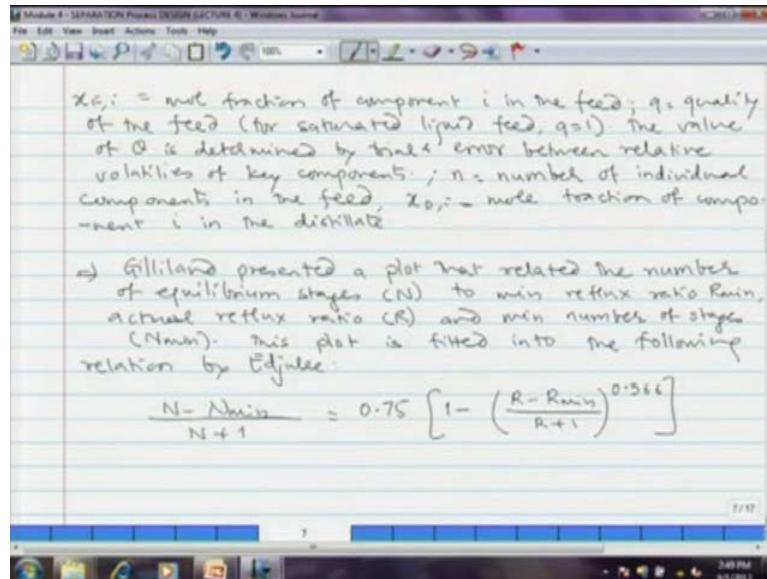 Module 4 - SEPARATION Process DESIGN (LECTURE 4) - Windows Journal
File Edit View Insert Actions Tools Help
100%
xF,i = mole fraction of component i in the feed; q = quality
of the feed (for saturated liquid feed, q=1) The value
of θ is determined by trial & error between relative
volatilies of key components; n = number of individual
components in the feed, xD,i = mole fraction of compo-
-nent i in the distillate
⇒ Gilliland presented a plot that related the number
of equilibrium stages (N) to min reflux ratio Rmin,
actual reflux ratio (R) and min number of stages
(Nmin). This plot is fitted into the following
relation by Edjulee:
N - Nmin / N + 1 = 0.75 [1 - (R - Rmin / R + 1)^0.566]
7/17
7
2:49 PM